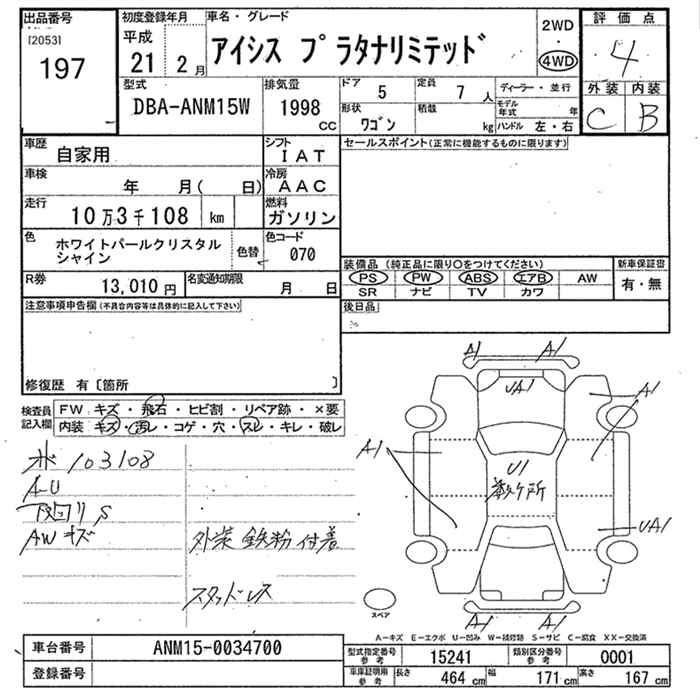 出品番号
[2053]
197
初度登録年月
平成
21 2 月
車名・グレード
アイシス プラタナリミテッド
2WD
・
4WD
評価点
4
外装 内装
C B
型式
DBA-ANM15W
排気量
1998
CC
ドア
5
定員
7 人
ディーラー・並行
モデル年式 年
形状
ワゴン
積載
kg
ハンドル 左・右
車歴
自家用
シフト
IAT
セールスポイント(正常に機能するものに限ります)
車検
年 月( 日)
冷房
AAC
走行
10万3千108 km
燃料
ガソリン
色
ホワイトパールクリスタル
シャイン
色替
色コード
070
装備品(純正品に限り○をつけてください)
PS PW ABS エアB AW
SR ナビ TV カワ
新車保証書
有・無
R券
13,010 円
名変通知期限
月 日
後日品
注意事項申告欄(不具合内容等は具体的に記入して下さい)
修復歴 有〔箇所 〕
検査員
記入欄
FW キズ・飛石・ヒビ割・リペア跡・×要
内装 キズ・汚レ・コゲ・穴・スレ・キレ・破レ
ボ 103108
A-U
下回リ S
AWキズ
外装 鉄粉付着
スタッドレス
A1 A1
UA1
A1
A1
U1
数ケ所
UA1
A1 A1
スペア
A-キズ E-エクボ U-凹み W-補修跡 S-サビ C-腐食 XX-交換済
車台番号
ANM15-0034700
登録番号
型式指定番号
参考
15241
類別区分番号
参考
0001
車庫証明用
参考
長さ
464 cm
幅
171 cm
高さ
167 cm